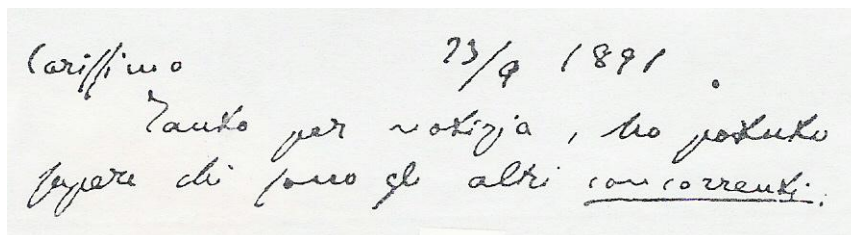 Carissimo 23/9 1891.
Tanto per notizja, ho potuto
sapere chi sono gli altri concorrenti.